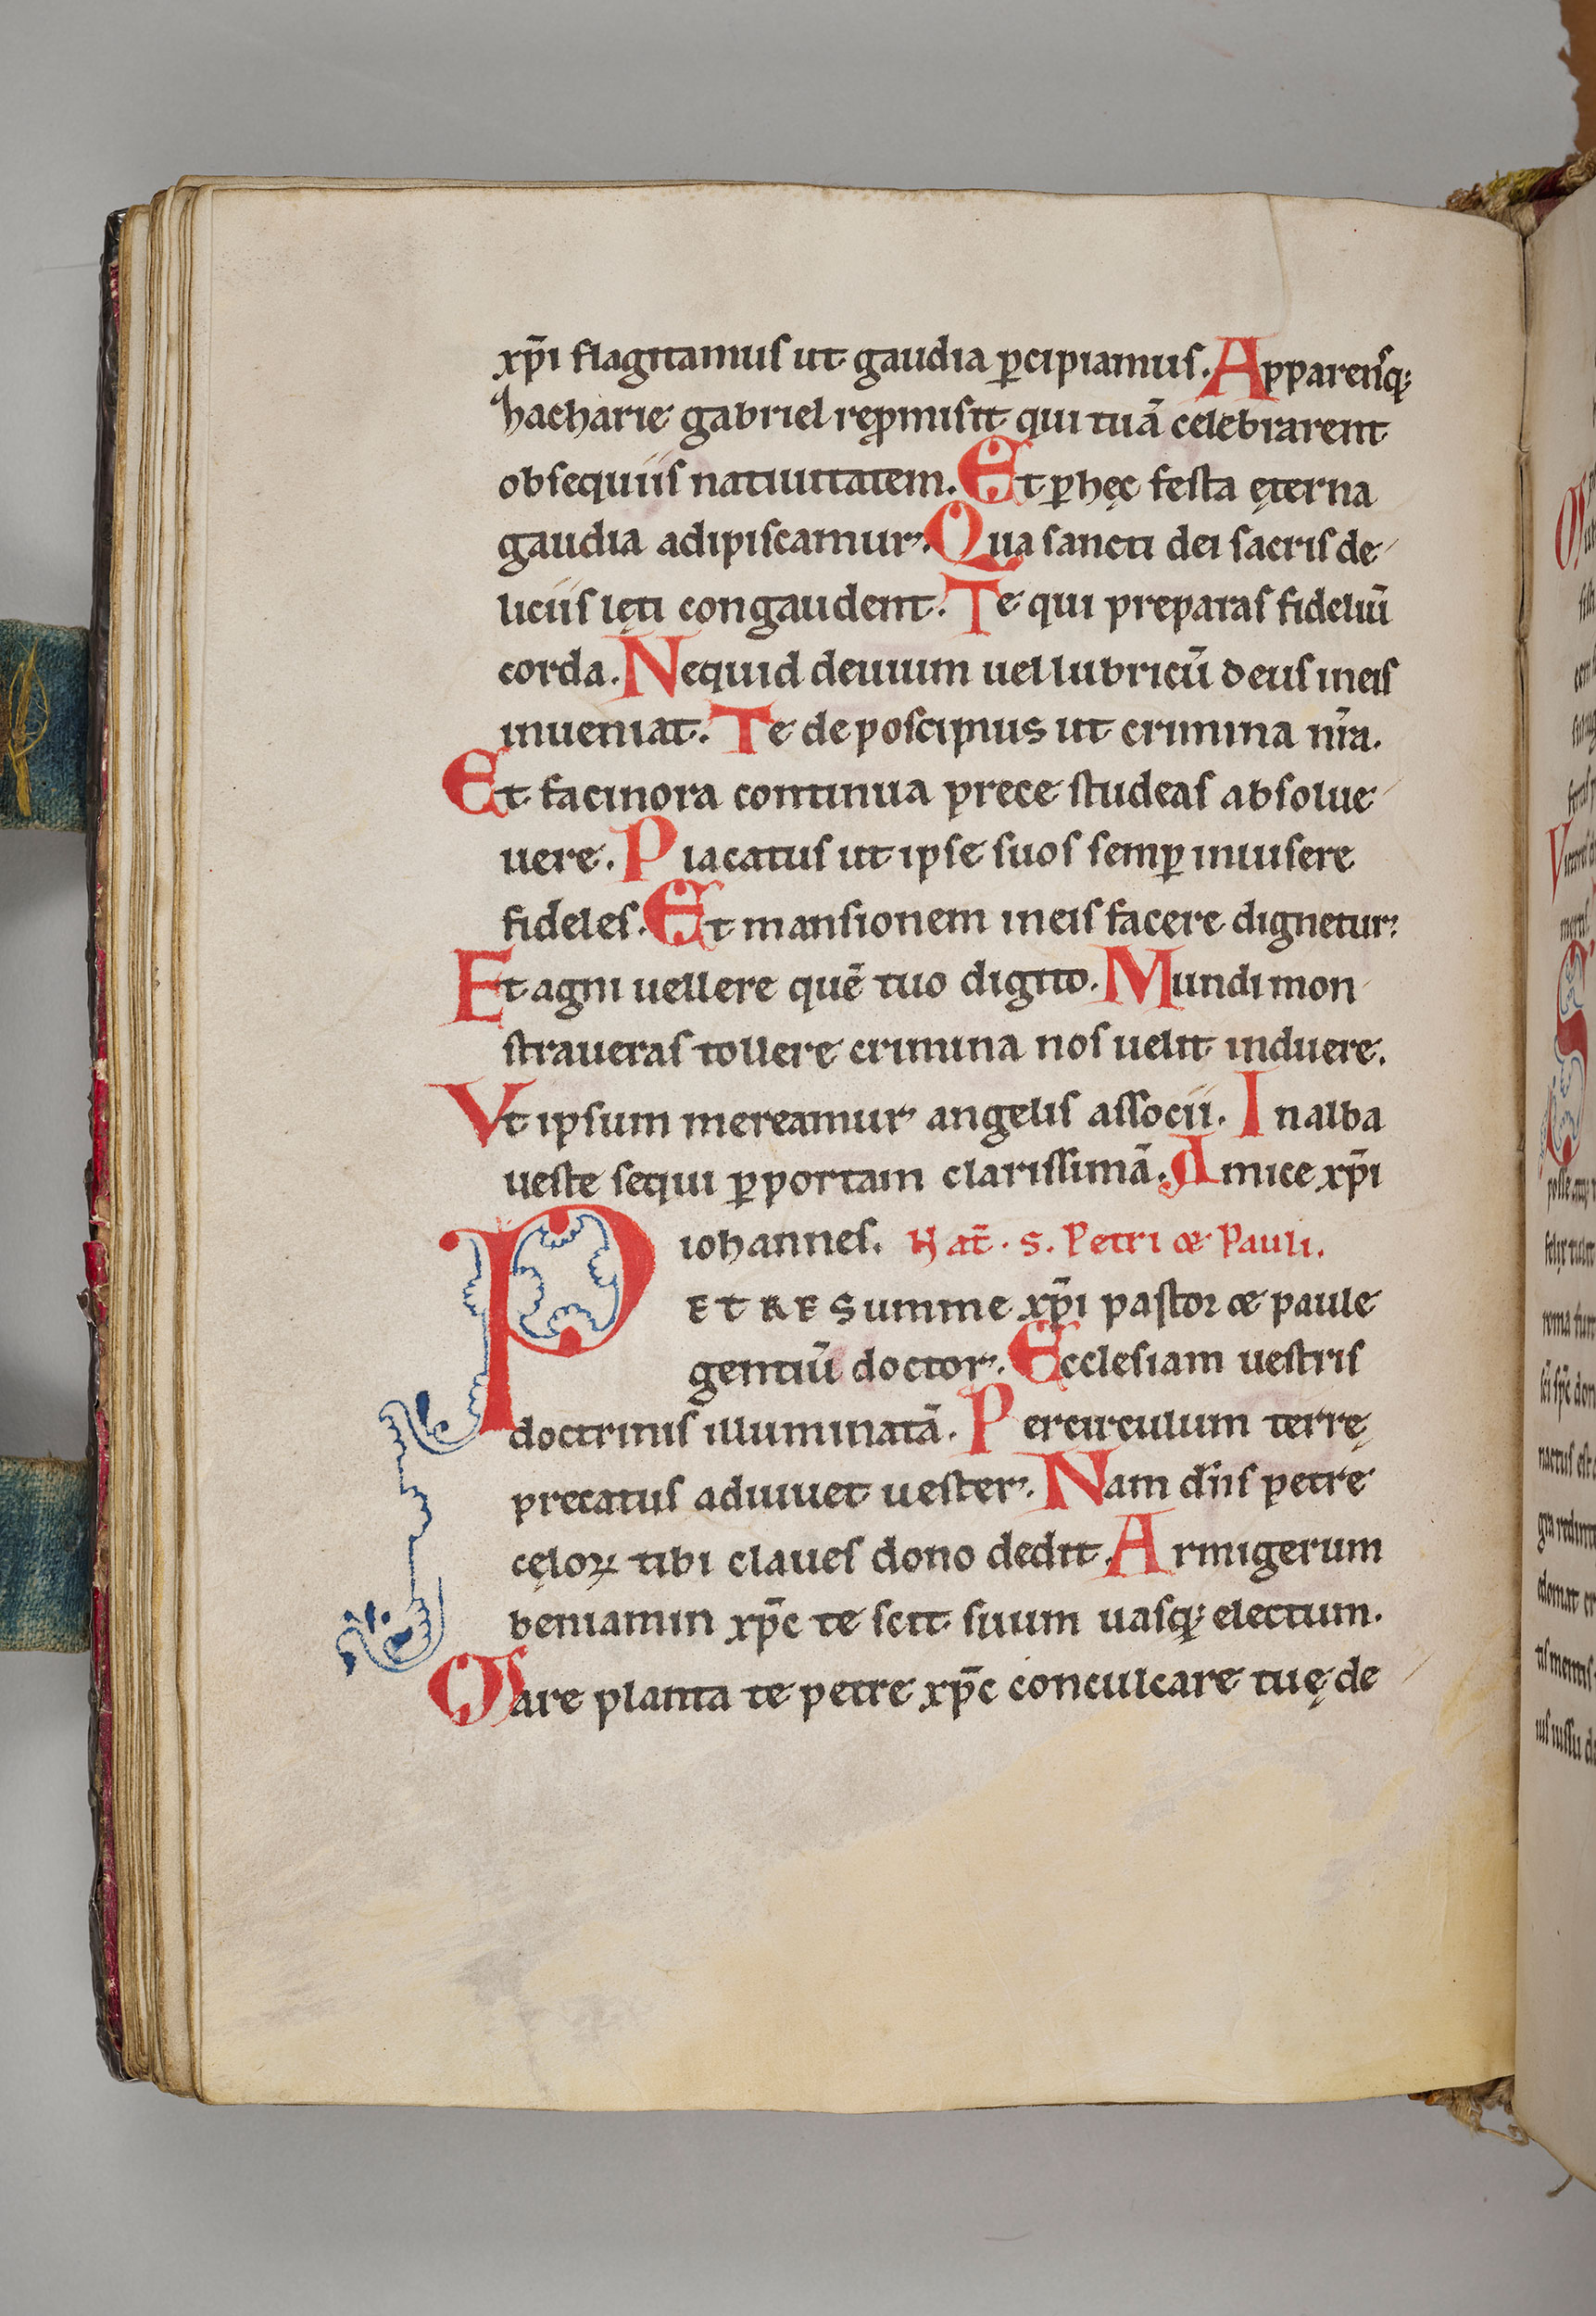 xp̄i flagitamus ut gaudia ꝑcipiamus. Apparensq;
hacharie gabriel reꝓmisit qui tuā celebrarent
obsequiis natiuitatem. Et ꝑ hęc festa ęterna
gaudia adipiscamur. Qua sancti dei sacris de
liciis lęti congaudent. Te qui preparas fideliū
corda. Nequid deuium uel lubricū deus ineis
inueniat. Te deposcimus ut crimina nr̄a.
Et facinora continua prece studeas absolue
uere. Placatus ut ipse suos semꝑ inuisere
fideles. Et mansionem ineis facere dignetur.
Et agni uellere quē tuo digito. Mundi mon
straueras tollere crimina nos uelit induere.
Vt ipsum mereamur angelis associi. In alba
ueste sequi ꝑ portam clarissimā. Amice xp̄i
iohannes. Nat̄. S. Petri & Pauli.
PETRE Summe xp̄i pastor & paule
gentiū doctor. Ecclesiam uestris
doctrinis illuminatā. Per circulum terrę
precatus adiuuet uester. Nam dn̄s petre
cęloꝝ tibi claues dono dedit. Armigerum
beniamin xp̄c te scit suum uasq; electum.
Mare planta te petre xp̄c conculcare tuę de